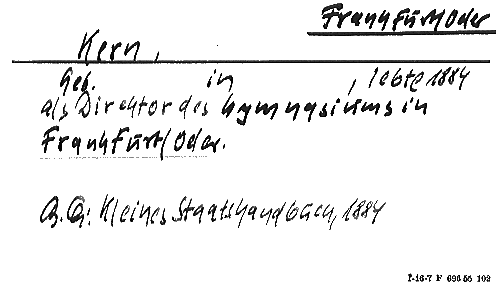 Frankfurt/Oder
Kern,
Geb. in , lebte 1884
als Direktor des Gymnasiums in
Frankfurt/Oder.
Kleines Staatshandbuch, 1884
I-16-7 F 696 56 102